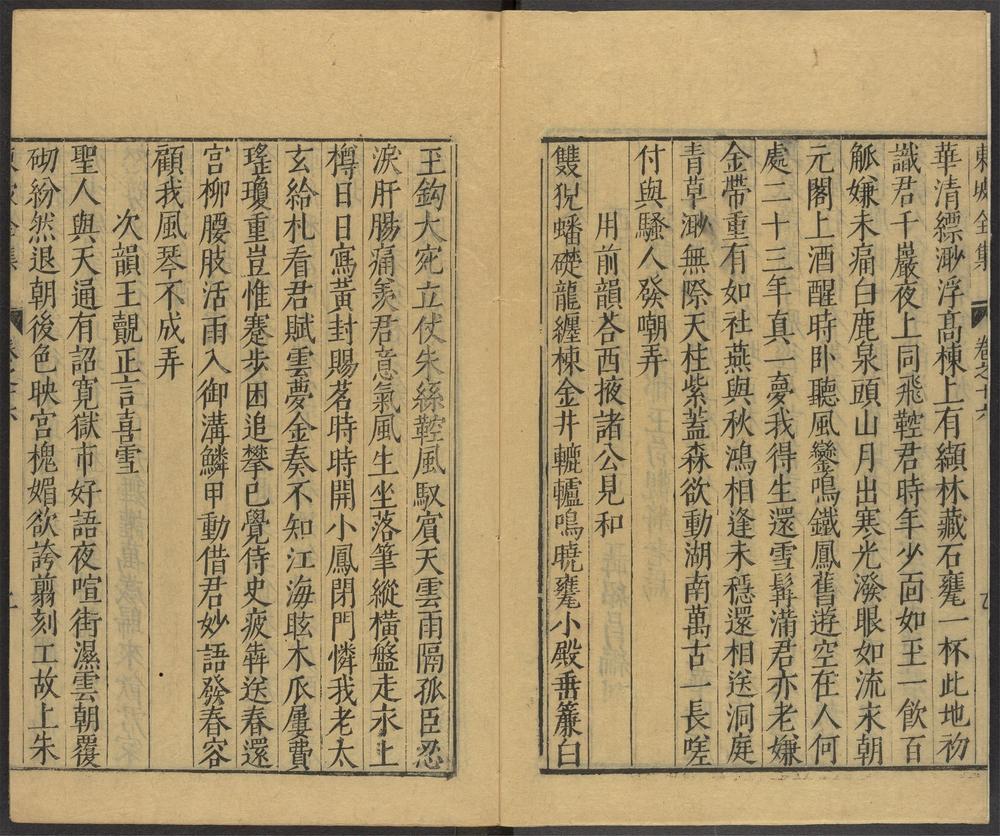 華清縹渺浮高棟上有纈林藏石甕一杯此地初
識君千巖夜上同飛鞚君時年少面如玉一飲百
觚嫌未痛白鹿泉頭山月出寒光潑眼如流汞朝
元閣上酒醒時卧聽風鑾鳴鐵鳳舊遊空在人何
處二十三年真一夢我得生還雪髯滿君亦老嫌
金帶重有如社燕與秋鴻相逢未穩還相送洞庭
青草渺無際天柱紫蓋森欲動湖南萬古一長嗟
付與騷人發嘲弄
用前韻荅西掖諸公見和
雙猊蟠礎龍纒棟金井轆轤鳴曉甕小殿垂簾白
玉鈎大宛立仗朱絲鞚風馭賔天雲雨隔孤臣忍
淚肝腸痛羨君意氣風生坐落筆縱橫盤走汞上
樽日日寫黃封賜茗時時開小鳳閉門憐我老太
玄給札看君賦雲夢金奏不知江海眩木瓜屢費
瑤瓊重豈惟蹇步困追攀已覺侍史疲奔送春還
宮柳腰肢活雨入御溝鱗甲動借君妙語發春容
顧我風琴不成弄
次韻王覿正言喜雪
聖人與天通有詔寬獄市好語夜喧街濕雲朝覆
砌紛然退朝後色映宮槐媚欲誇翦刻工故上朱